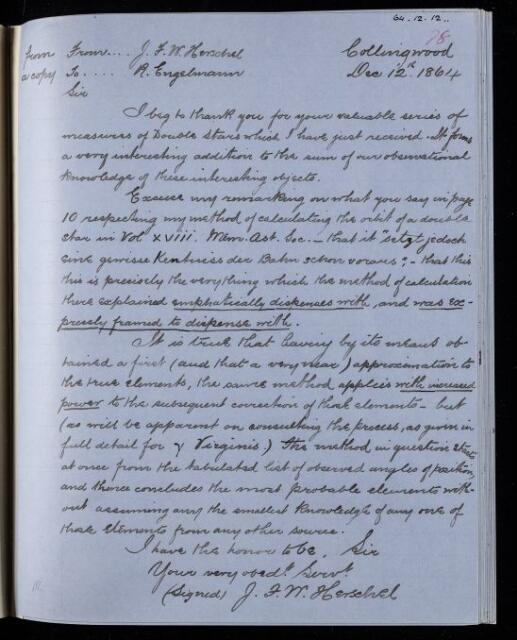 64.12.12..
78
from From.... J. F. W. Herschel Collingwood
a copy To..... R. Engelmann Dec 12th. 1864
Sir
I beg to thank you for your valuable series of
measures of Double Stars which I have just received. It forms
a very interesting addition to the sum of our observational
knowledge of these interesting objects.
Excuse my remarking on what you say in page
10 respecting my method of calculating the orbit of a double
star in Vol XVIII. Mem. Ast. Soc. — that it "setzt jedoch
eine gewisse Kentniss der Bahn schon voraus"; — that this
this is precisely the very thing which the method of calculation
there explained emphatically dispenses with, and was ex-
pressly framed to dispense with.
It is true that having by its means ob
tained a first (and that a very near) approximation to
the true elements, the same method applies with increased
power to the subsequent correction of those elements — but
(as will be apparent on consulting the process, as given in
full detail for γ Virginis.) the method in question starts
at once from the tabulated list of observed angles of position,
and thence concludes the most probable elements with-
out assuming any the smallest knowledge of any one of
those elements from any other source.
I have the honor to be, Sir
Your very obedt. Servt.
(Signed) J. F. W. Herschel